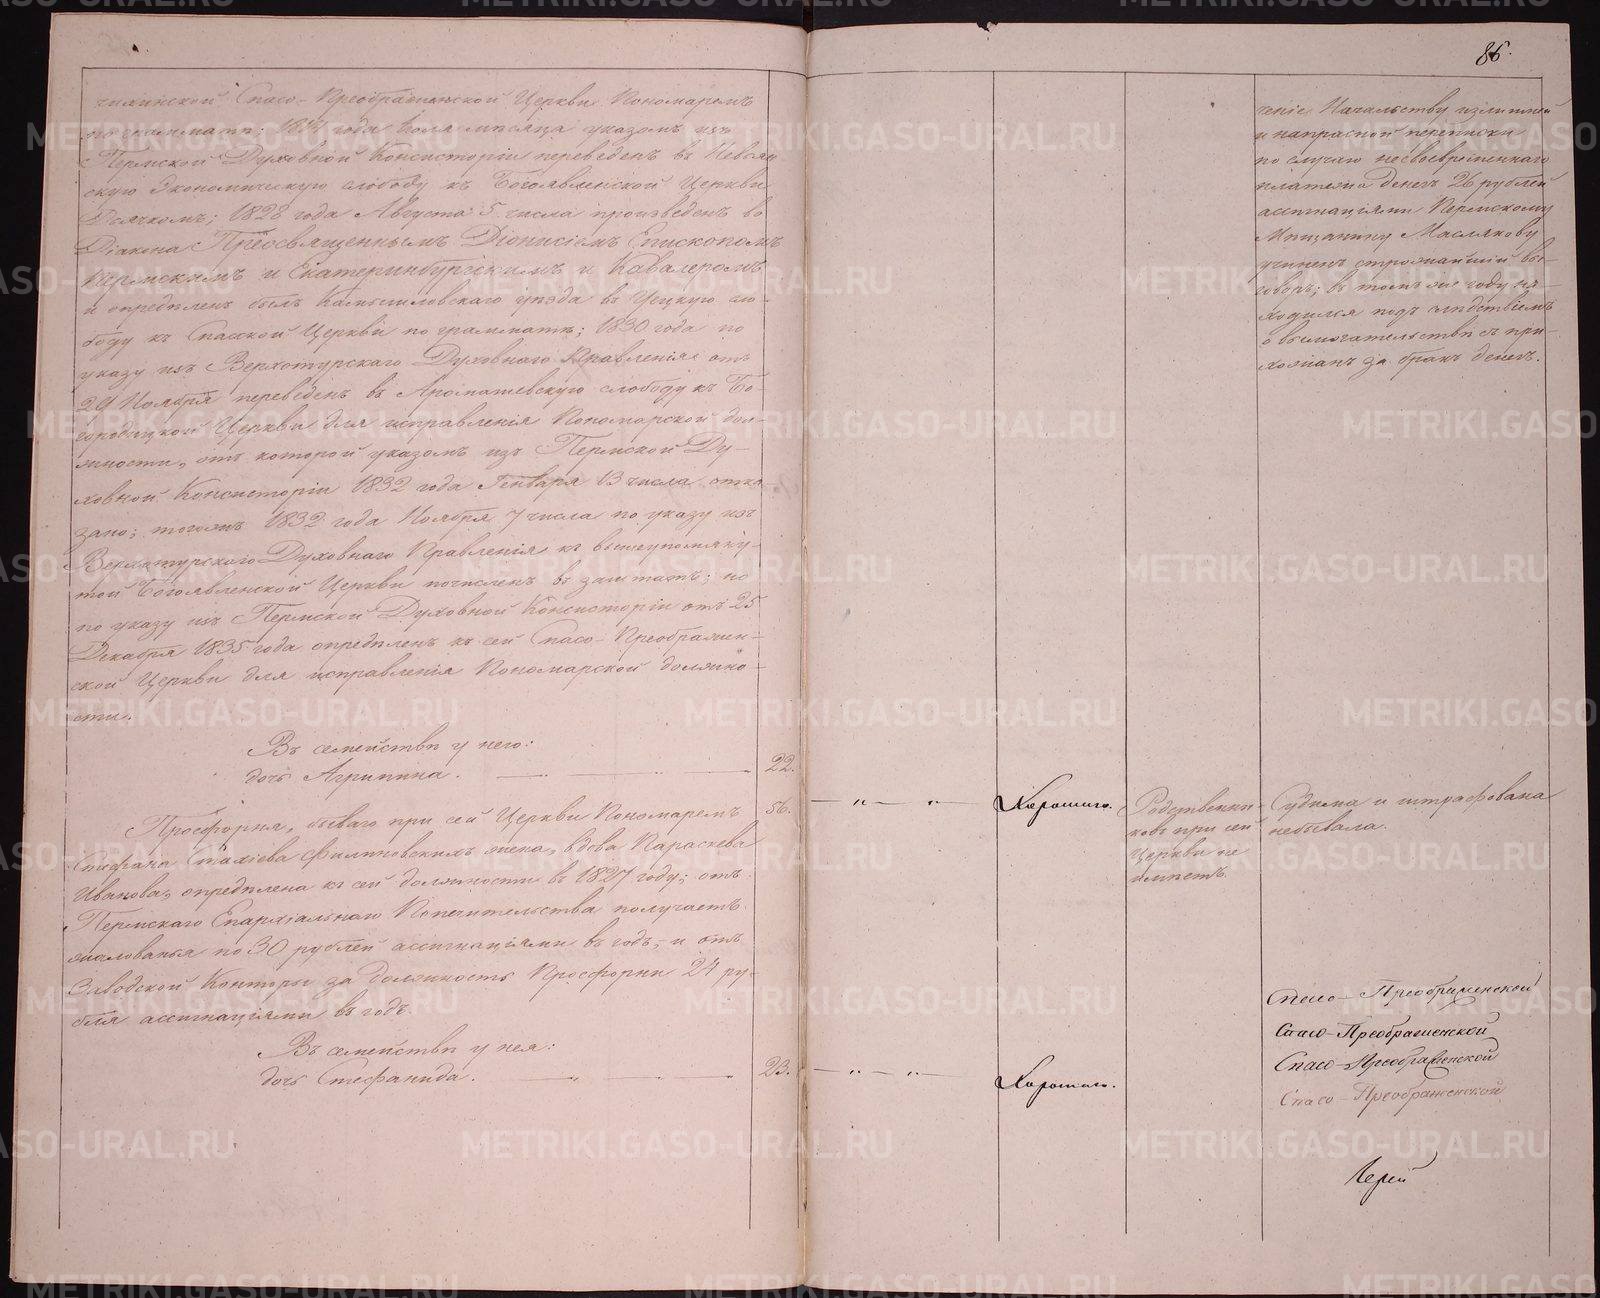 86.
чилинской Спасо-Преображенской Церкви Пономаремъ
по граммате; года месяца указомъ изъ
Пермской Духовной Консисторіи переведенъ въ Невьян-
скую Экономическую слободу къ Богоявленской Церкви
Дьячкомъ; 1828 года Августа 5 числа произведенъ во
Діакона Преосвященнымъ Діонисіемъ Епископомъ
Пермскимъ и Екатеринбургскимъ и Кавалеромъ
и определенъ былъ Камышловскаго уезда въ Уецкую сло-
боду къ Спасской Церкви по грамматѣ; 1830 года по
указу изъ Верхотурскаго Духовнаго Правленія отъ
29 Ноября переведенъ въ Аромашевскую слободу къ Бо-
городицкой Церкви для исправленія Пономарской дол-
жности, отъ которой указомъ изъ Пермской Ду-
ховной Консисторіи 1832 года Генваря 13 числа отка-
зано; тогожъ 1832 года Ноября 7 числа по указу изъ
Верхотурскаго Духовнаго Правленія къ вышеупомяну-
той Богоявленской Церкви почисленъ въ заштатъ; но
по указу изъ Пермской Духовной Консисторіи отъ 25
Декабря 1835 года определенъ къ сей Спасо-Преображен-
ской Церкви для исправленія Пономарской должно-
сти.
Въ семействѣ у него:
дочь Агрипина. 22.
Просфорня, бываго при сей Церкви Пономаремъ 56.
Стефана Филиповскихъ жена, вдова Параскева
Иванова, определена къ сей должности въ 1827 году; отъ
Пермскаго Епархіальнаго Попечительства получаетъ
жалованья по 30 рублей ассигнаціями въ годъ, и отъ
Заводской Конторы за должность Просфорни 24 ру-
бля ассигнаціями въ годъ.
Въ семействѣ у нея:
дочь Стефанида. 23.
Хорошаго.
Хорошаго.
Родственни-
ковъ при сей
Церкви не
имѣетъ.
ченіе Начальству излишней
и напрасной переписки
по случаю несвоевременнаго
платежа денегъ 26 рублей
ассигнаціями Пермскому
Мѣщанину Маслякову
учиненъ строжайшій вы-
говоръ; въ томъ же году на-
ходился подъ слѣдствіемъ
о вымогательствѣ съ при-
хожанъ за бракъ денегъ.
Судима и штрафована
небывала.
Спасо-Преображенской
Спасо-Преображенской
Спасо-Преображенской
Спасо-Преображенской
Іерей
METRIKI.GASO-URAL.RU